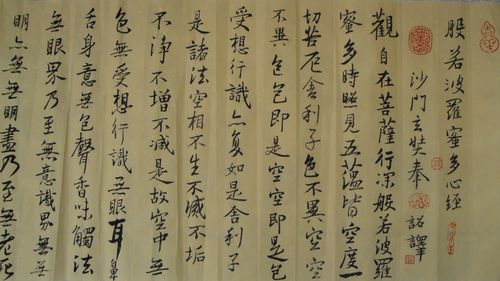 般若波羅蜜多心經
沙門玄奘奉詔譯
觀自在菩薩行深般若波羅
蜜多時照見五蘊皆空度一
切苦厄舍利子色不異空空
不異色色即是空空即是色
受想行識亦复如是舍利子
是諸法空相不生不滅不垢
不淨不增不減是故空中無
色無受想行識无眼耳鼻
舌身意無色聲香味觸法
無眼界乃至無意識界無無
明亦無無明盡乃至無老死